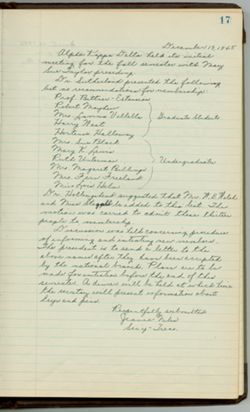 17
December 13, 1945
Alpha Kappa Delta held its initial
meeting for the fall semester with Mary
Sue Taylor presiding.
Dr. Sutherland presented the following
list as recommendations for membership:
Prof.
Robert Mayhew
Mrs. Lavina
Harry Neet
Hortense Halloway
Graduate Students
Mrs. Sue Black
Mary K. Lewis
Ruth Unterman
Mrs. Margaret Billings
Mrs. Fern Freeland
Miss Lois Helm
Undergraduates
Dr. Hollingshead suggested that Mrs. R. E. Walsh
and Miss be added to this list. The
motion was carried to admit these thirteen
people to membership.
Discussion was held concerning procedure
of informing and initiating new members.
The president is to send a letter to the
above names after they have been accepted
by the national branch. Plans are to be
made for initiation before the end of the
semester. A dinner will be held at which time
the secretary will present information about
keys and pins.
Respectfully submitted
Jeanne
Secy-Treas.